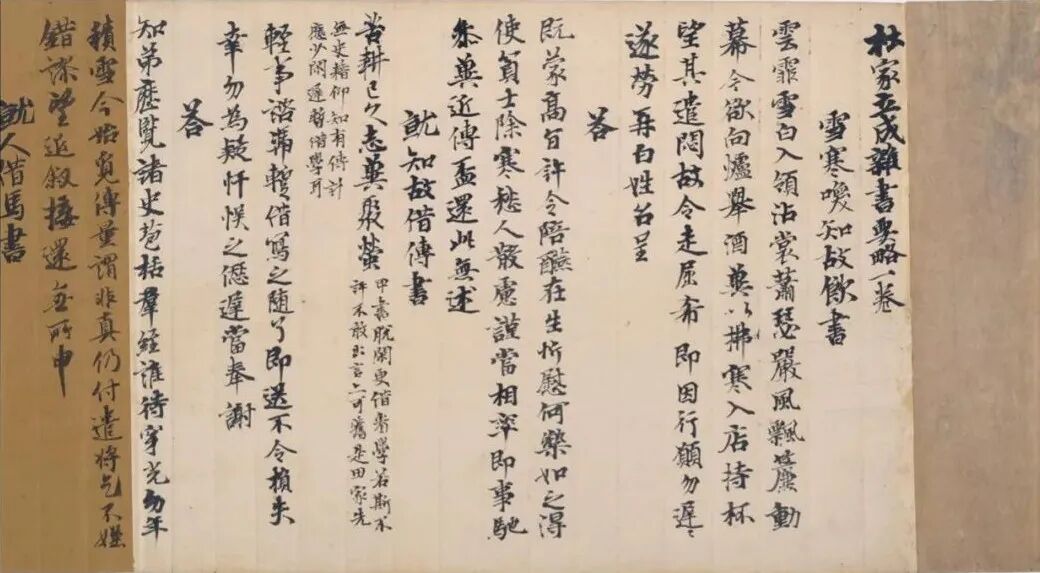 杜家立成雜書要略一卷
雪寒喚知故飲書
雲霏雪白入領沾裳蕭瑟嚴風飄簷動
幕今欲向爐舉酒冀以拂寒入店持杯
望其遣悶故令走屈希即因行願勿遲々
遂勞再白姓名呈
答
既蒙高旨許令陪醼在生忻慰何樂如之得
使貧士除寒愁人散慮謹當相率即事馳
叅冀近傳盃還此無述
就知故借傳書
苦耕已久志冀聚螢
甲素耽閑更借希學若斯不
許不敢出言亡可舊是田家先
無史籍仰知有傳計
應少閑蹔借學耳
輕事諮蹔借寫之随了即送不令損失
幸勿為疑忓悞之僁遲當奉謝
答
知弟歷覽諸史苞括羣經誰待穿光勿年
積雪今始覓傳量謂非真仍付遣將乞不嫌
錯謬望近敘還無所申
就人借馬書